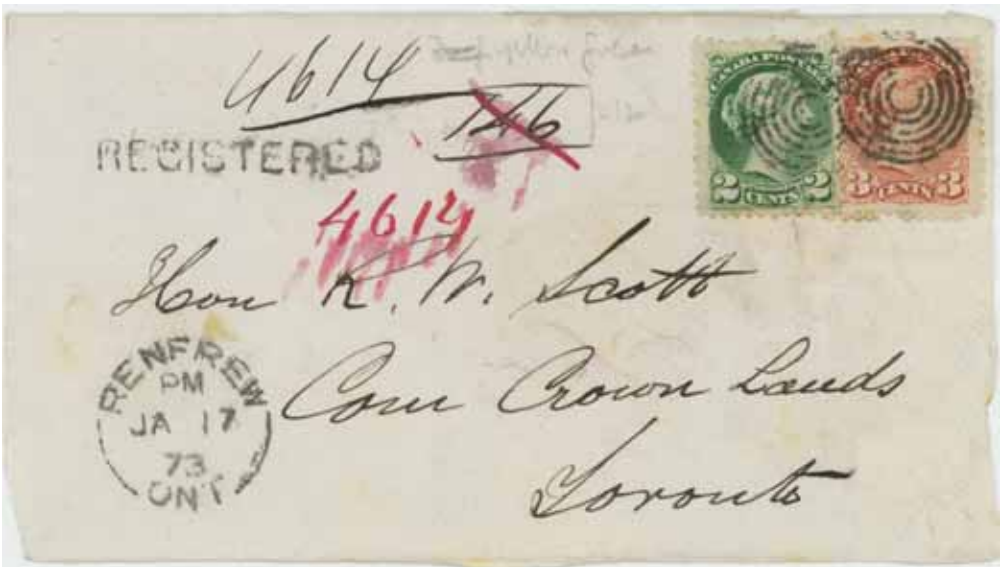 4614
146
REGISTERED
4614
CANADA POSTAGE
2 CENTS 2
3 CENTS 3
Hon R. W. Scott
Com Crown Lands
Toronto
RENFREW
PM
JA 17
73
ONT